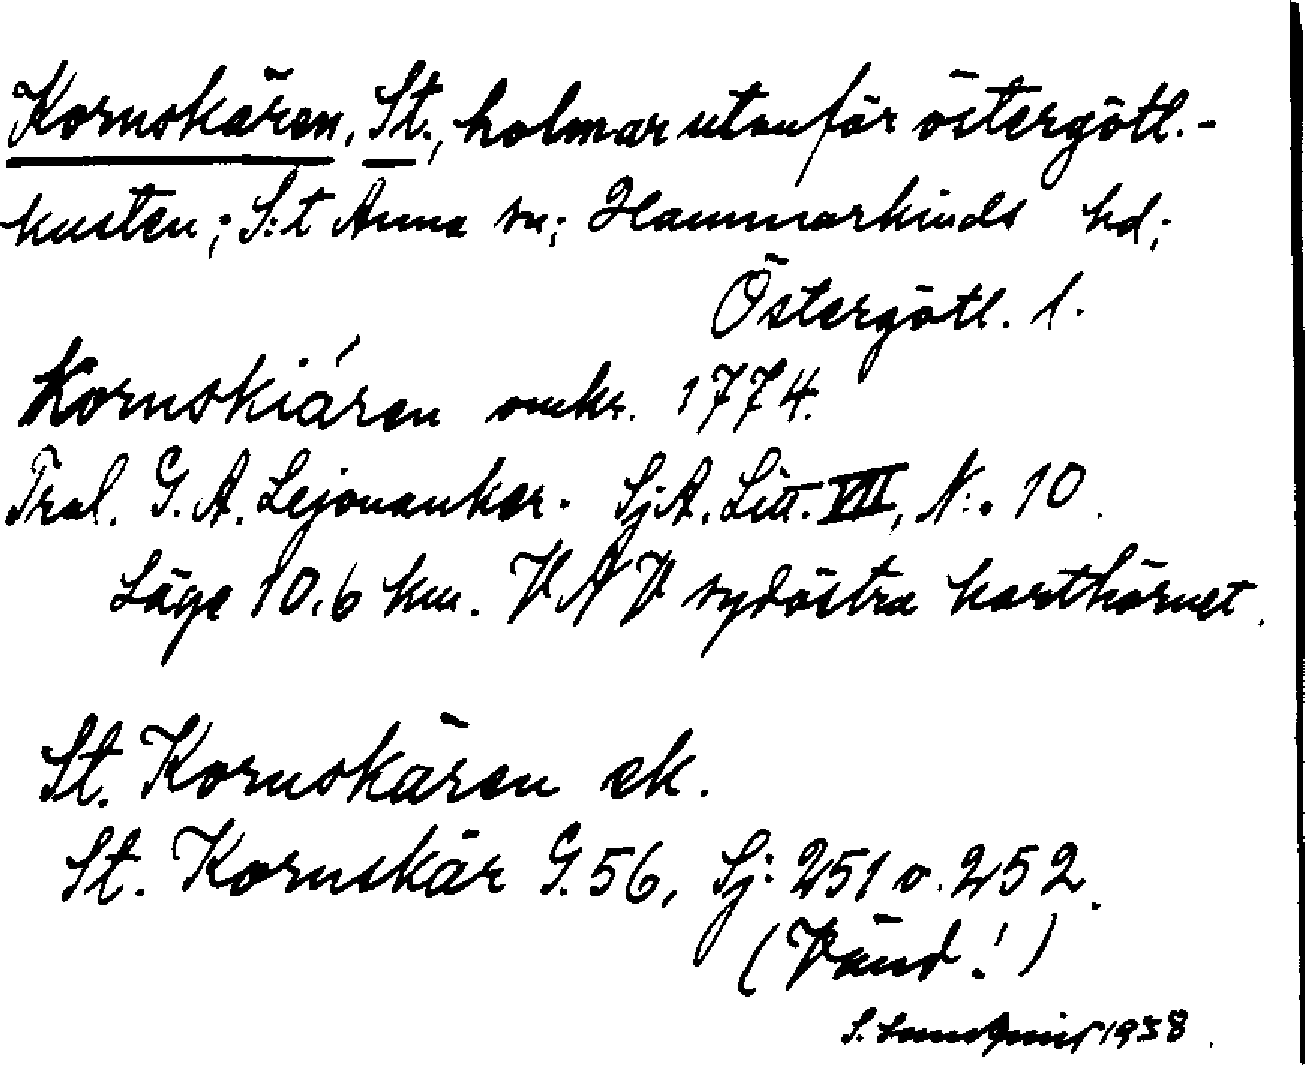 Kornskären, St., holmar utanför östergötl.-
kusten; S:t Anna sn; Hammarkinds hd;
Östergötl. l.
Kornskiáren omkr. 1774.
Tral. G. A. Lejonanker. SjA. Litt. VIII, N:. 10.
Läge 10.6 km. V N V sydöstra karthörnet.
St. Kornskären ek.
St. Kornskär G. 56, Sj: 251 o. 252.
(Vänd!)
S. 1938.